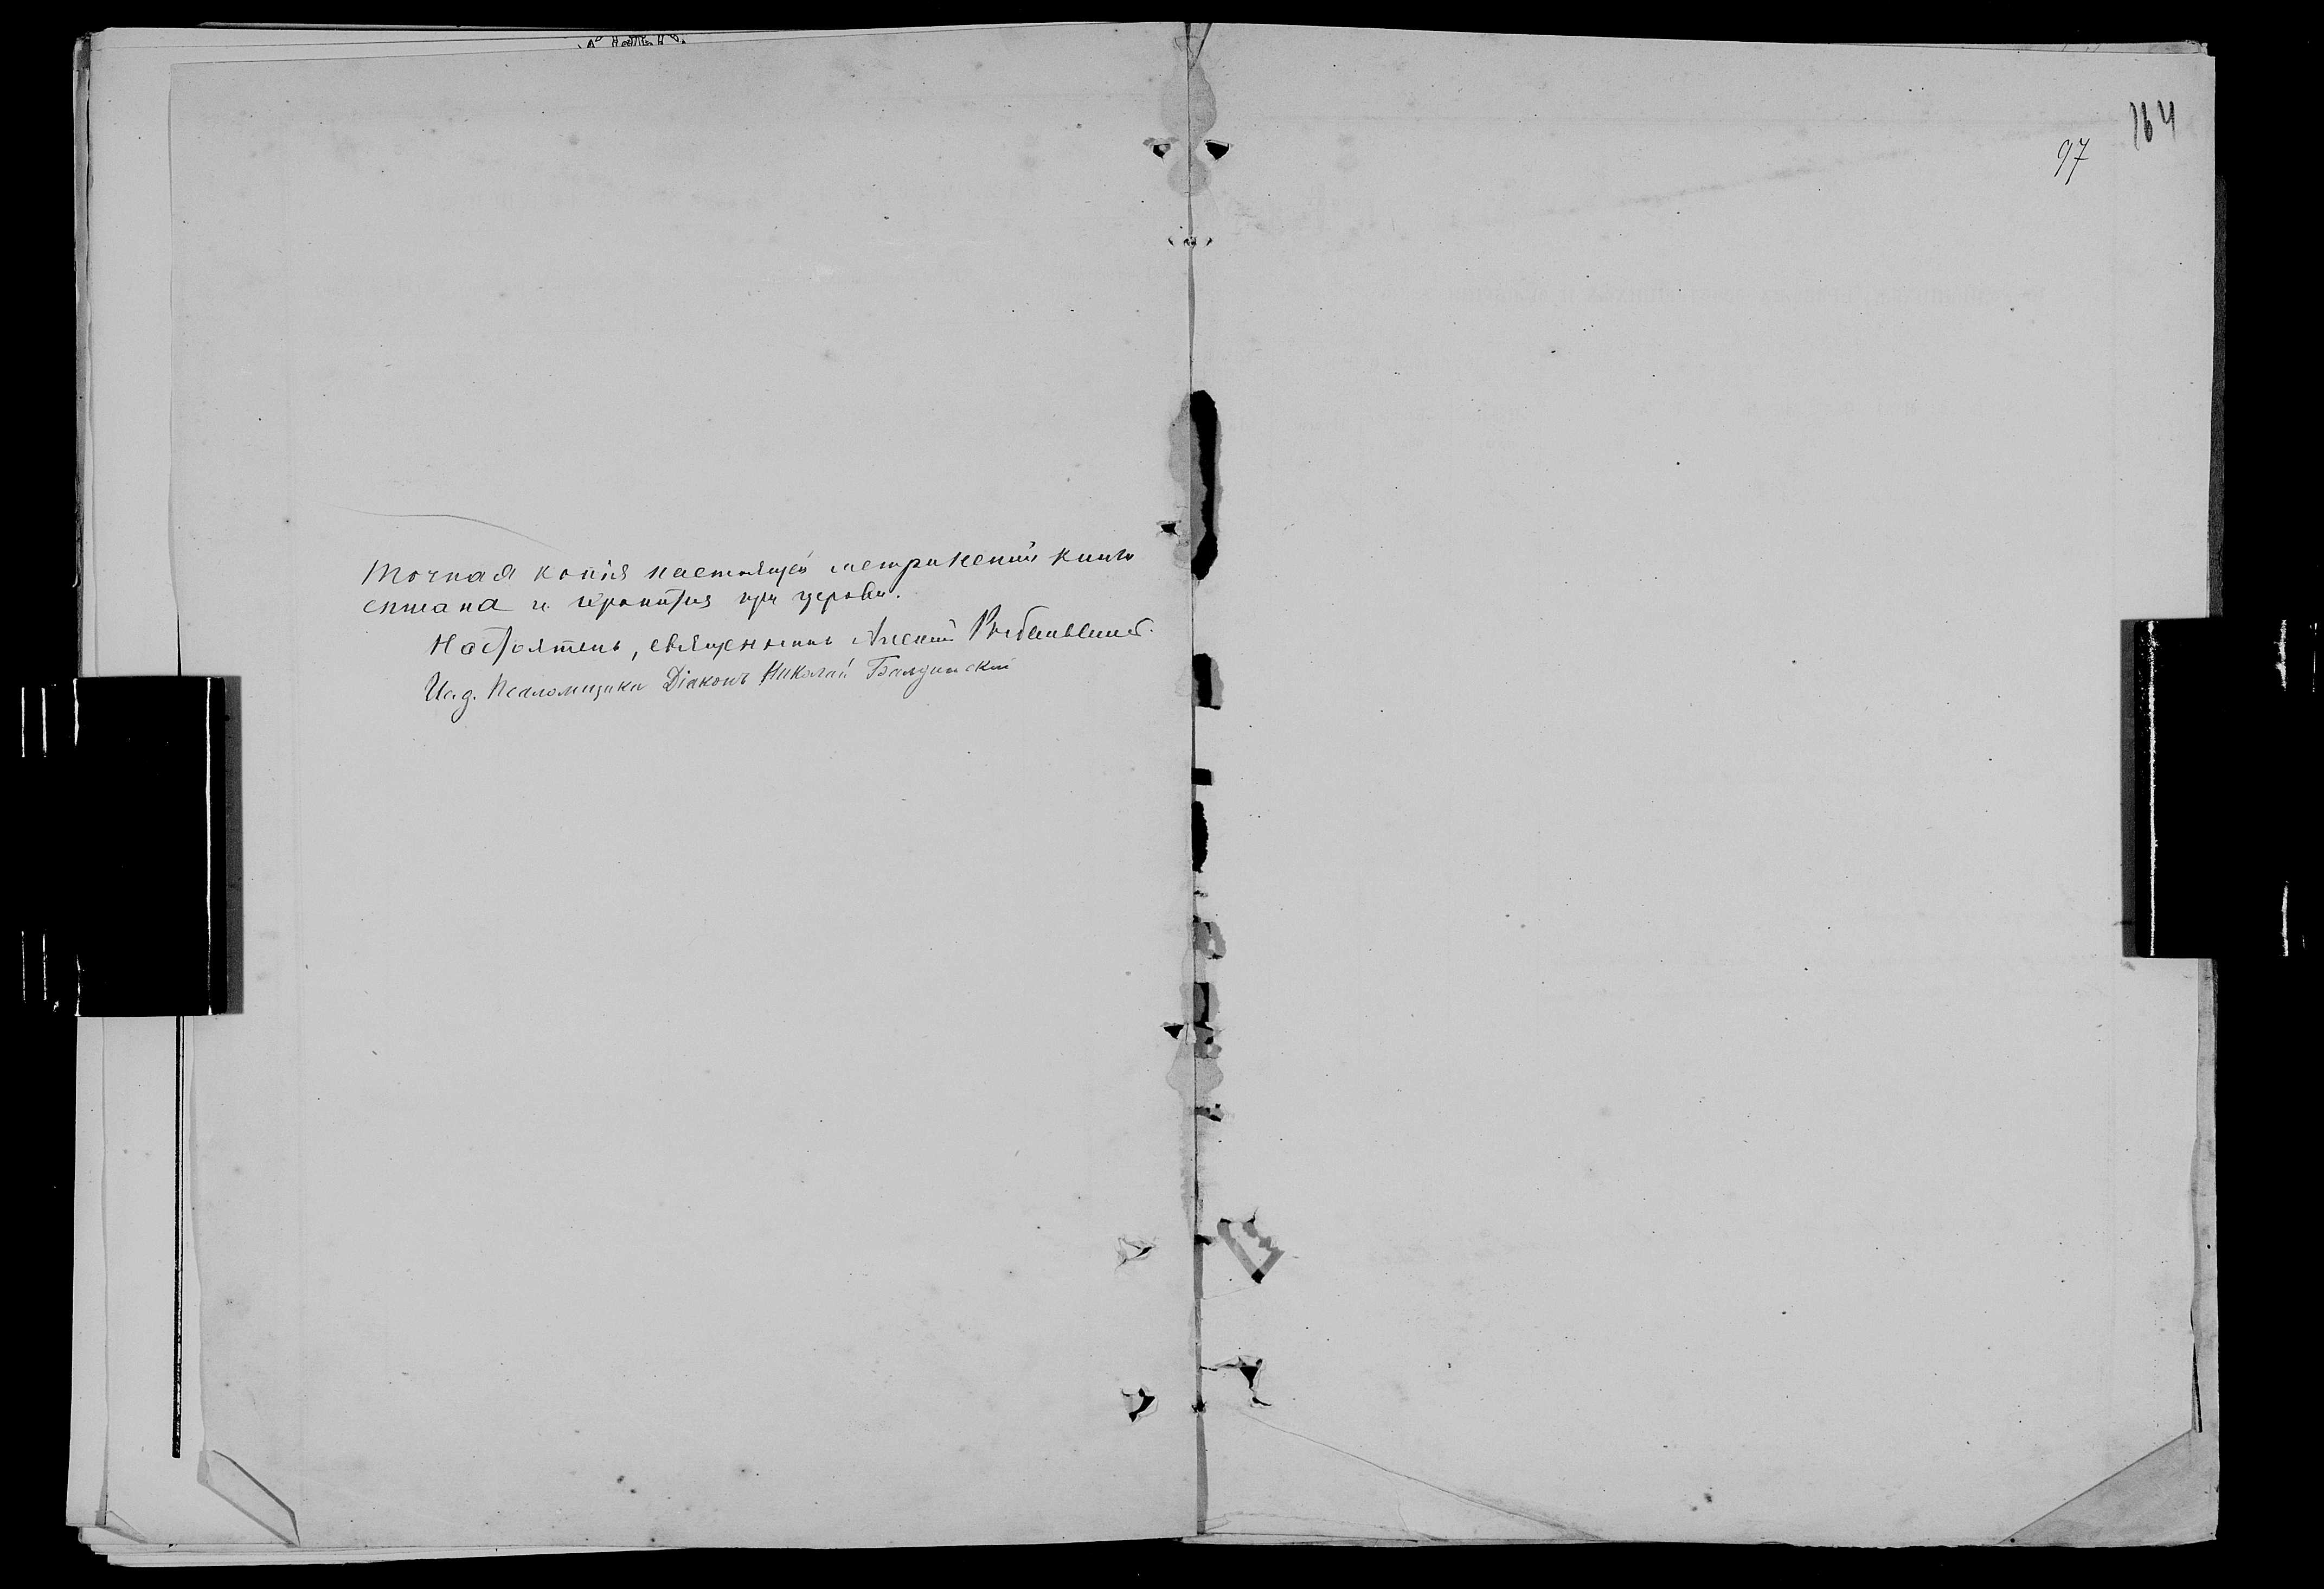 164
97
Точная копія настоящей метрической книги
снята и хранится при церкви.
Настоятель, священникъ Алексій
И. д. Псаломщика Діаконъ Николай Балдинскій